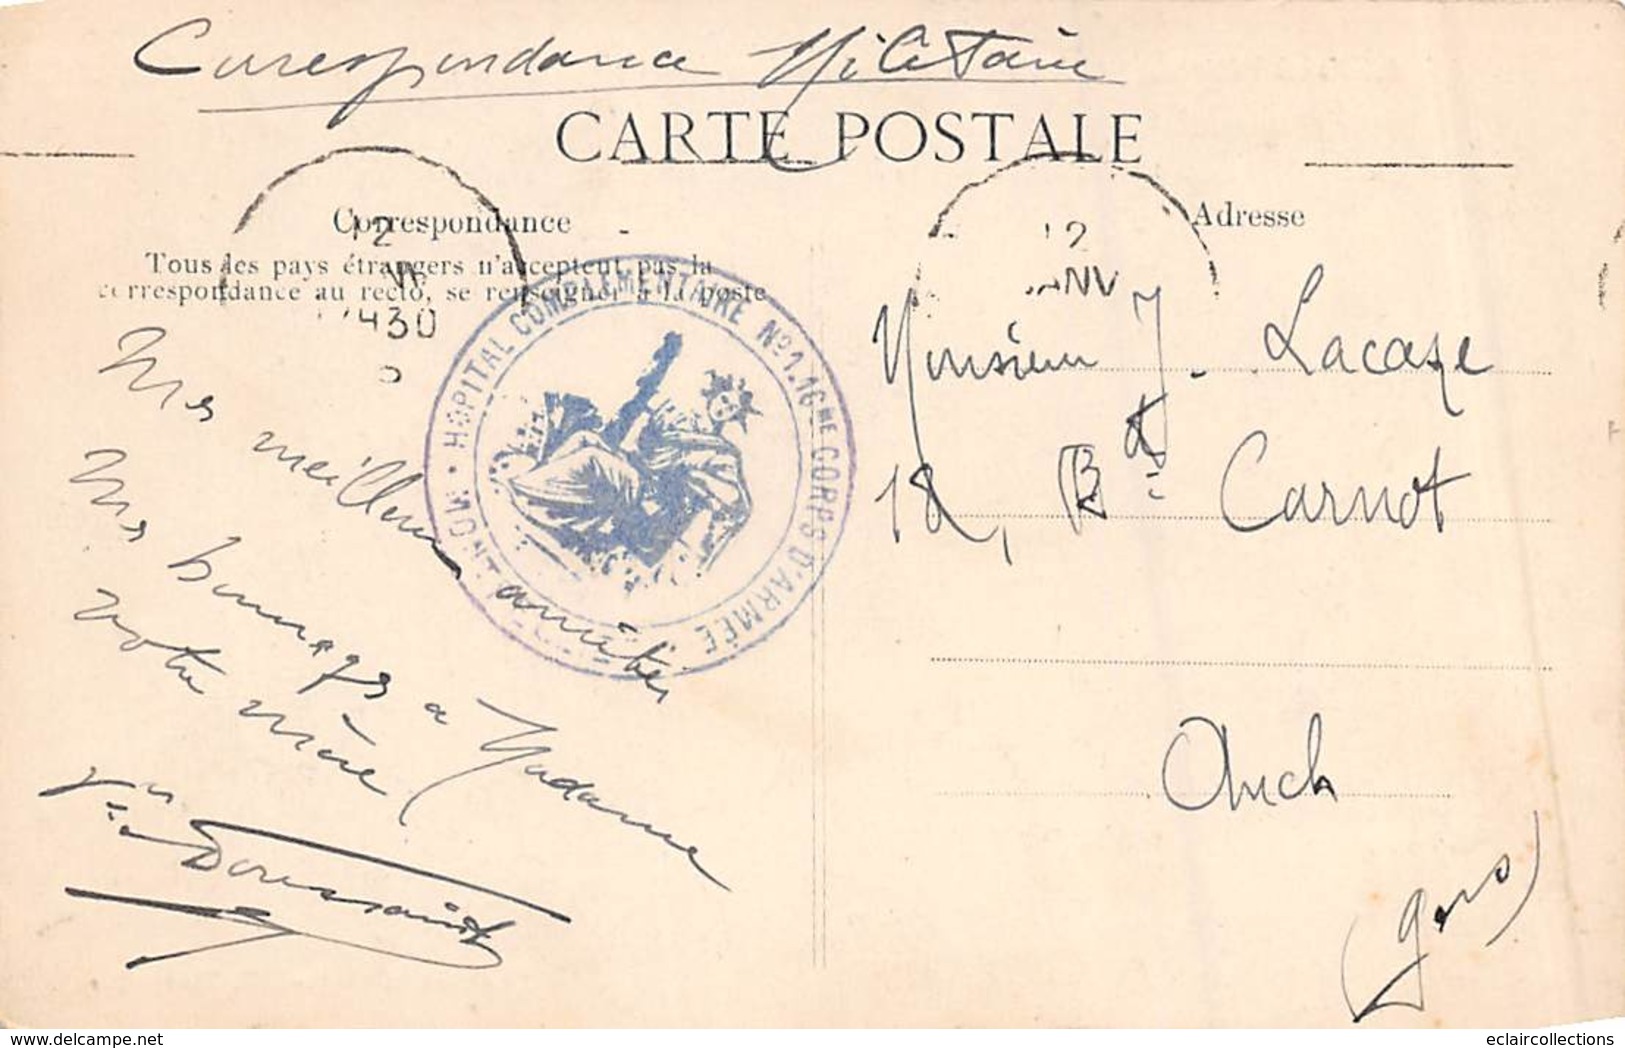 Correspondance Militaire
CARTE POSTALE
Correspondance
Tous les pays étrangers n'acceptent pas la
correspondance au recto, se renseigner à la poste
Adresse
12
430
12
JANV
HOPITAL COMPLEMENTAIRE Nº1.16ME CORPS D'ARMÉE
Mes meilleures amitiés
Mes hommages à Madame
votre mère
Toussaint
Monsieur J. Lacaze
18, Bd Carnot
Auch
(Gers)
eclaircollections